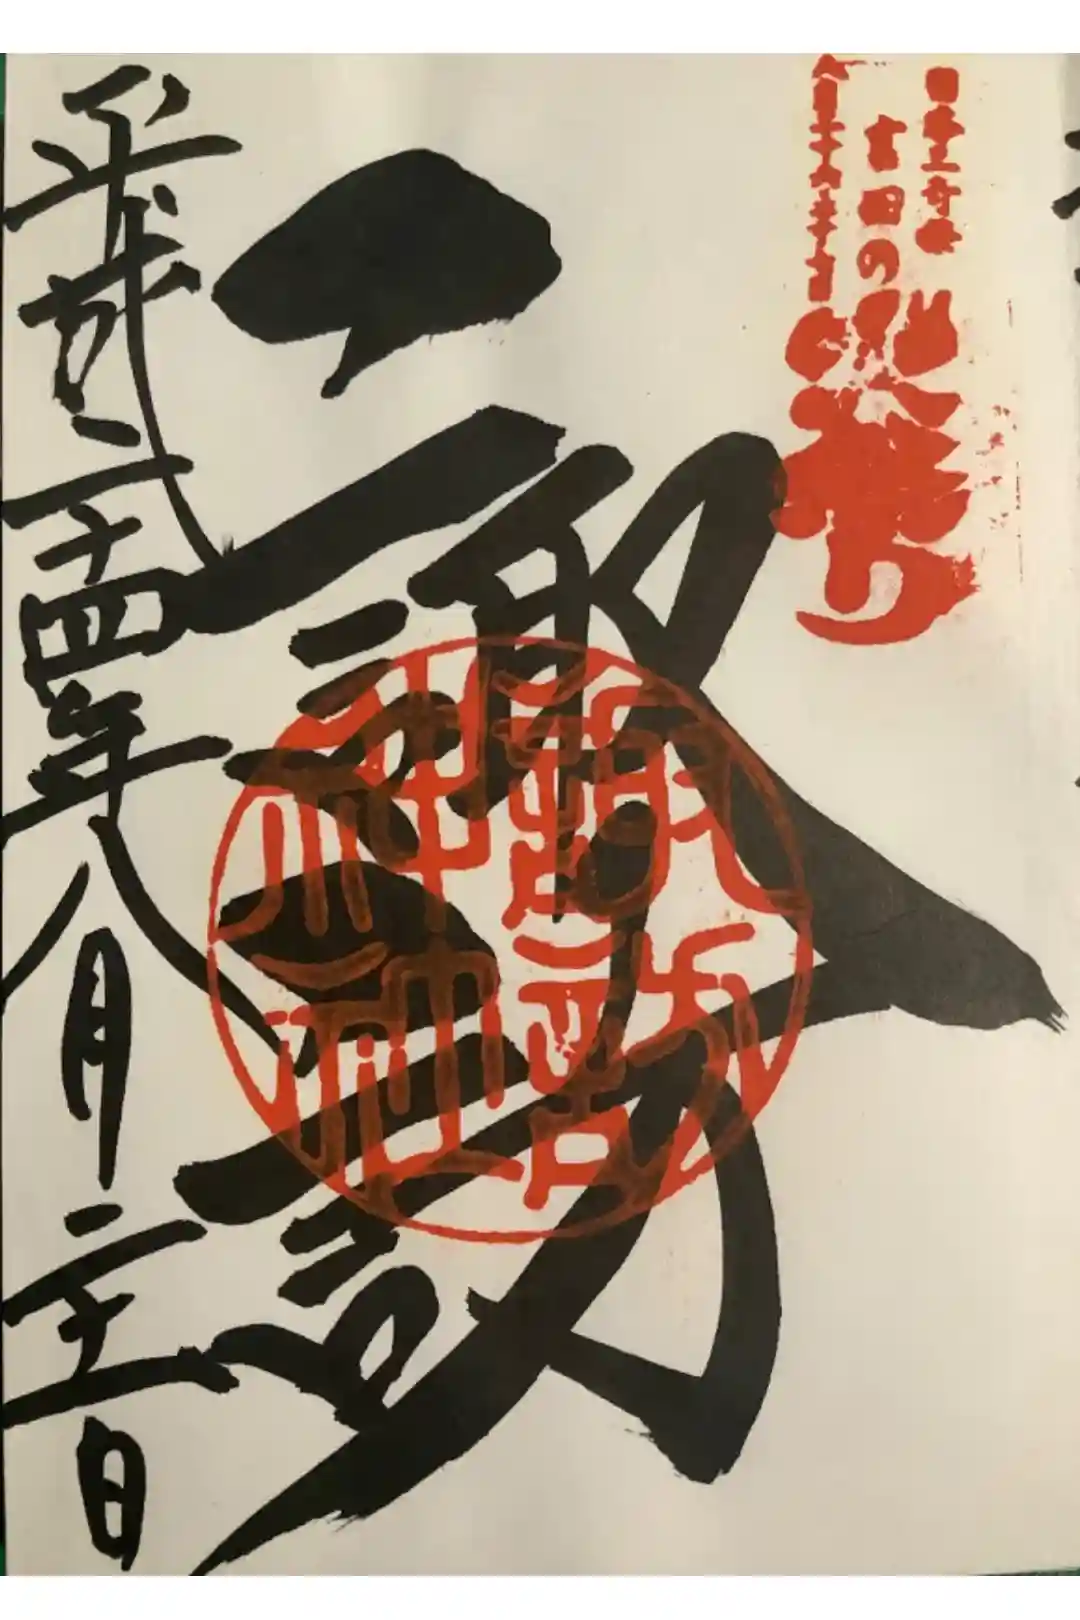 日本三奇祭
吉田の火祭り
諏訪
諏訪神社
平成二十四年八月二十一日